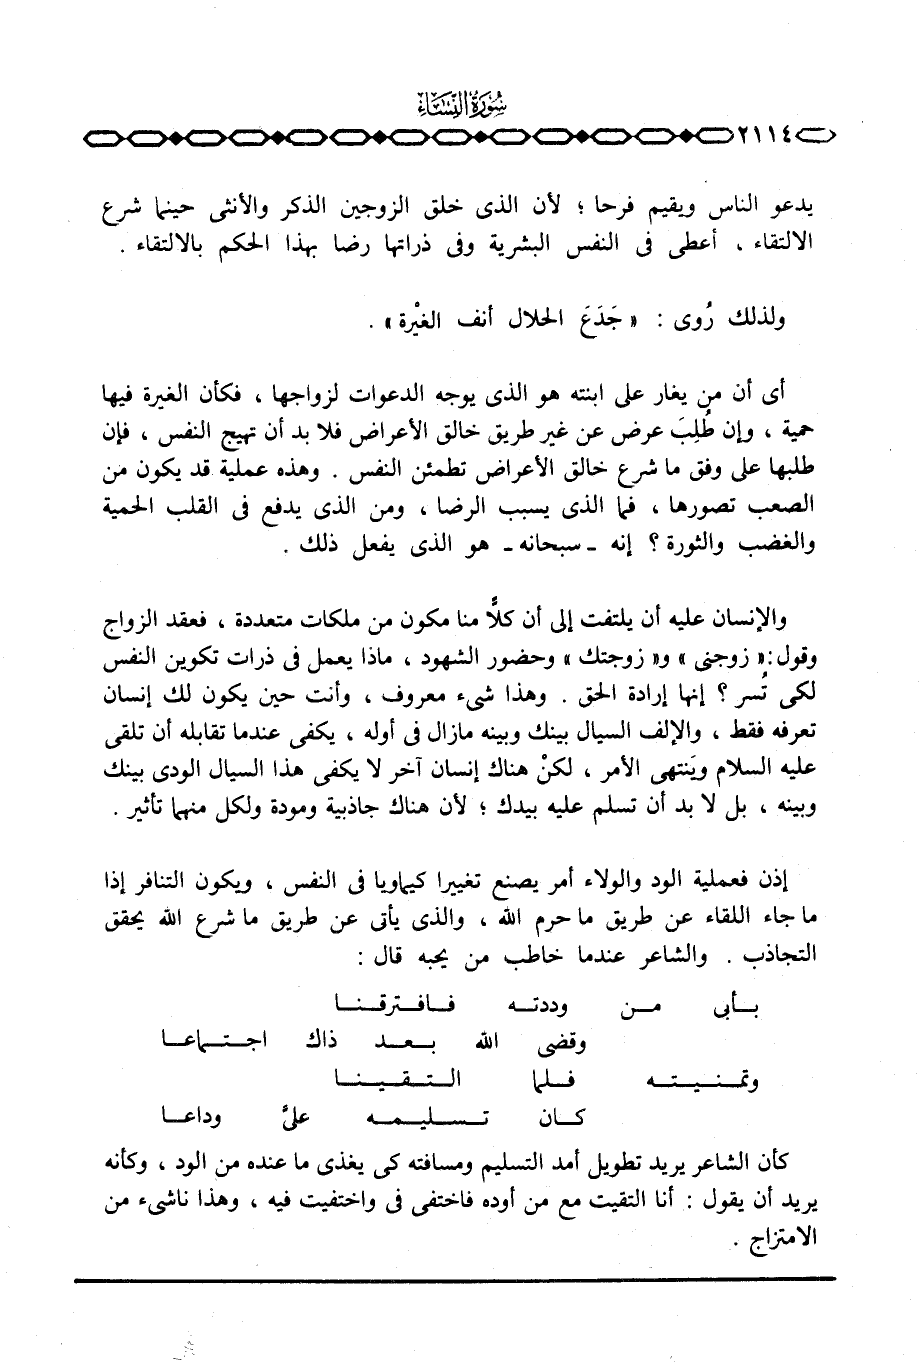 سُورَةُ النِّسَاءِ
٢١١٤
يدعو الناس ويقيم فرحا ؛ لأن الذى خلق الزوجين الذكر والأنثى حينما شرع
الالتقاء ، أعطى فى النفس البشرية وفى ذراتها رضا بهذا الحكم بالالتقاء .
ولذلك رُوى : « جَدَعَ الحلال أنف الغيْرة » .
أى أن من يغار على ابنته هو الذى يوجه الدعوات لزواجها ، فكأن الغيرة فيها
حمية ، وإن طُلِبَ عرض عن غير طريق خالق الأعراض فلا بد أن تهيج النفس ، فإن
طلبها على وفق ما شرع خالق الأعراض تطمئن النفس . وهذه عملية قد يكون من
الصعب تصورها ، فما الذى يسبب الرضا ، ومن الذى يدفع فى القلب الحمية
والغضب والثورة ؟ إنه ـ سبحانه ـ هو الذى يفعل ذلك .
والإنسان عليه أن يلتفت إلى أن كلاًّ منا مكون من ملكات متعددة ، فعقد الزواج
وقول : « زوجنى » و« زوجتك » وحضور الشهود ، ماذا يعمل فى ذرات تكوين النفس
لكى تُسر ؟ إنها إرادة الحق . وهذا شىء معروف ، وأنت حين يكون لك إنسان
تعرفه فقط ، والإلف السيال بينك وبينه مازال فى أوله ، يكفى عندما تقابله أن تلقى
عليه السلام ويَنتهى الأمر ، لكنْ هناك إنسان آخر لا يكفى هذا السيال الودى بينك
وبينه ، بل لا بد أن تسلم عليه بيدك ؛ لأن هناك جاذبية ومودة ولكل منهما تأثير .
إذن فعملية الود والولاء أمر يصنع تغييرا كيماويا فى النفس ، ويكون التنافر إذا
ما جاء اللقاء عن طريق ما حرم الله ، والذى يأتى عن طريق ما شرع الله يحقق
التجاذب . والشاعر عندما خاطب من يحبه قال :
بــأبى مــن وددتــه فــافــترقــنــا
وقضى الله بــعــد ذاك اجــتــماعــا
وتمــنــيــتــه فــلما الــتــقــيــنــا
كــان تــســليــمــه علىَّ وداعــا
كأن الشاعر يريد تطويل أمد التسليم ومسافته كى يغذى ما عنده من الود ، وكأنه
يريد أن يقول : أنا التقيت مع من أوده فاختفى فى واختفيت فيه ، وهذا ناشىء من
الامتزاج .